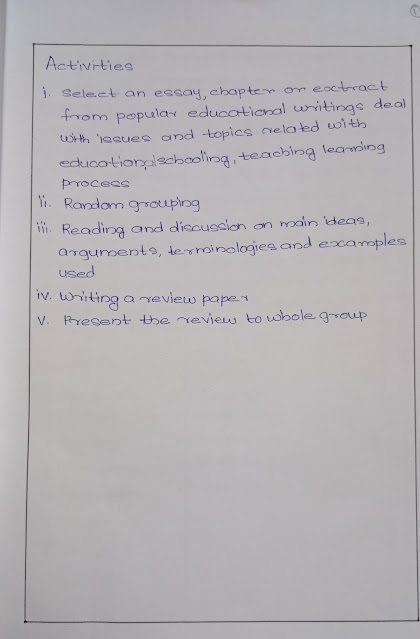 1
Activities
i. Select an essay, chapter or extract
from popular educational writings deal
with issues and topics related with
education, schooling, teaching learning
process
ii. Random grouping
iii. Reading and discussion on main ideas,
arguments, terminologies and examples
used
iv. Writing a review paper
v. Present the review to whole group